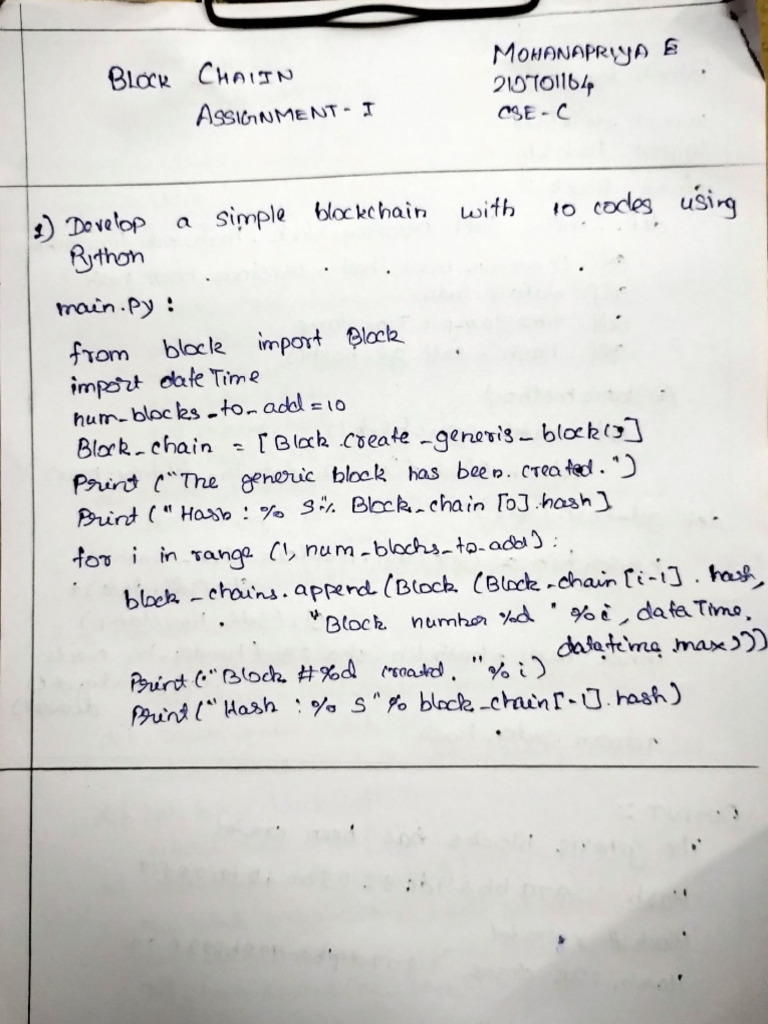 BLOCK CHAIIN
ASSIGNMENT - I
MOHANAPRIYA E
210701164
CSE - C
1) Develop a simple blockchain with 10 codes using
Python
main.py :
from block import Block
import dateTime
num_blocks_to_add = 10
Block_chain = [Block.create_generis_block()]
Print ("The generic block has been. created.")
Print ("Hash : % S"% Block_chain [0].hash]
for i in range (1, num_blocks_to_add) :
block_chains.append (Block (Block_chain [i-1] . hash,
"Block number %d " % i, dateTime.
datatime.max)))
Print ("Block #%d created. "% i)
Print ("Hash : % S" % block_chain [-1]. hash)